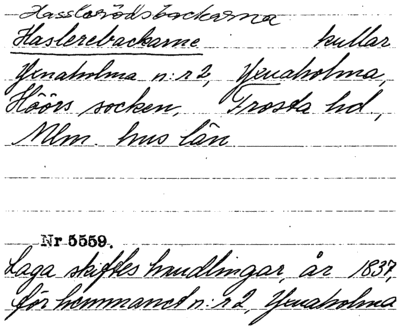 Hasslerödsbackarna
Haslerebackarne kullar
Yxnaholma n:r 2, Yxnaholma,
Höörs socken, Frosta hd,
Mlm. hus län
Nr 5559.
Laga skiftes handlingar, år 1837,
för hemmanet n:r 2, Yxnaholma